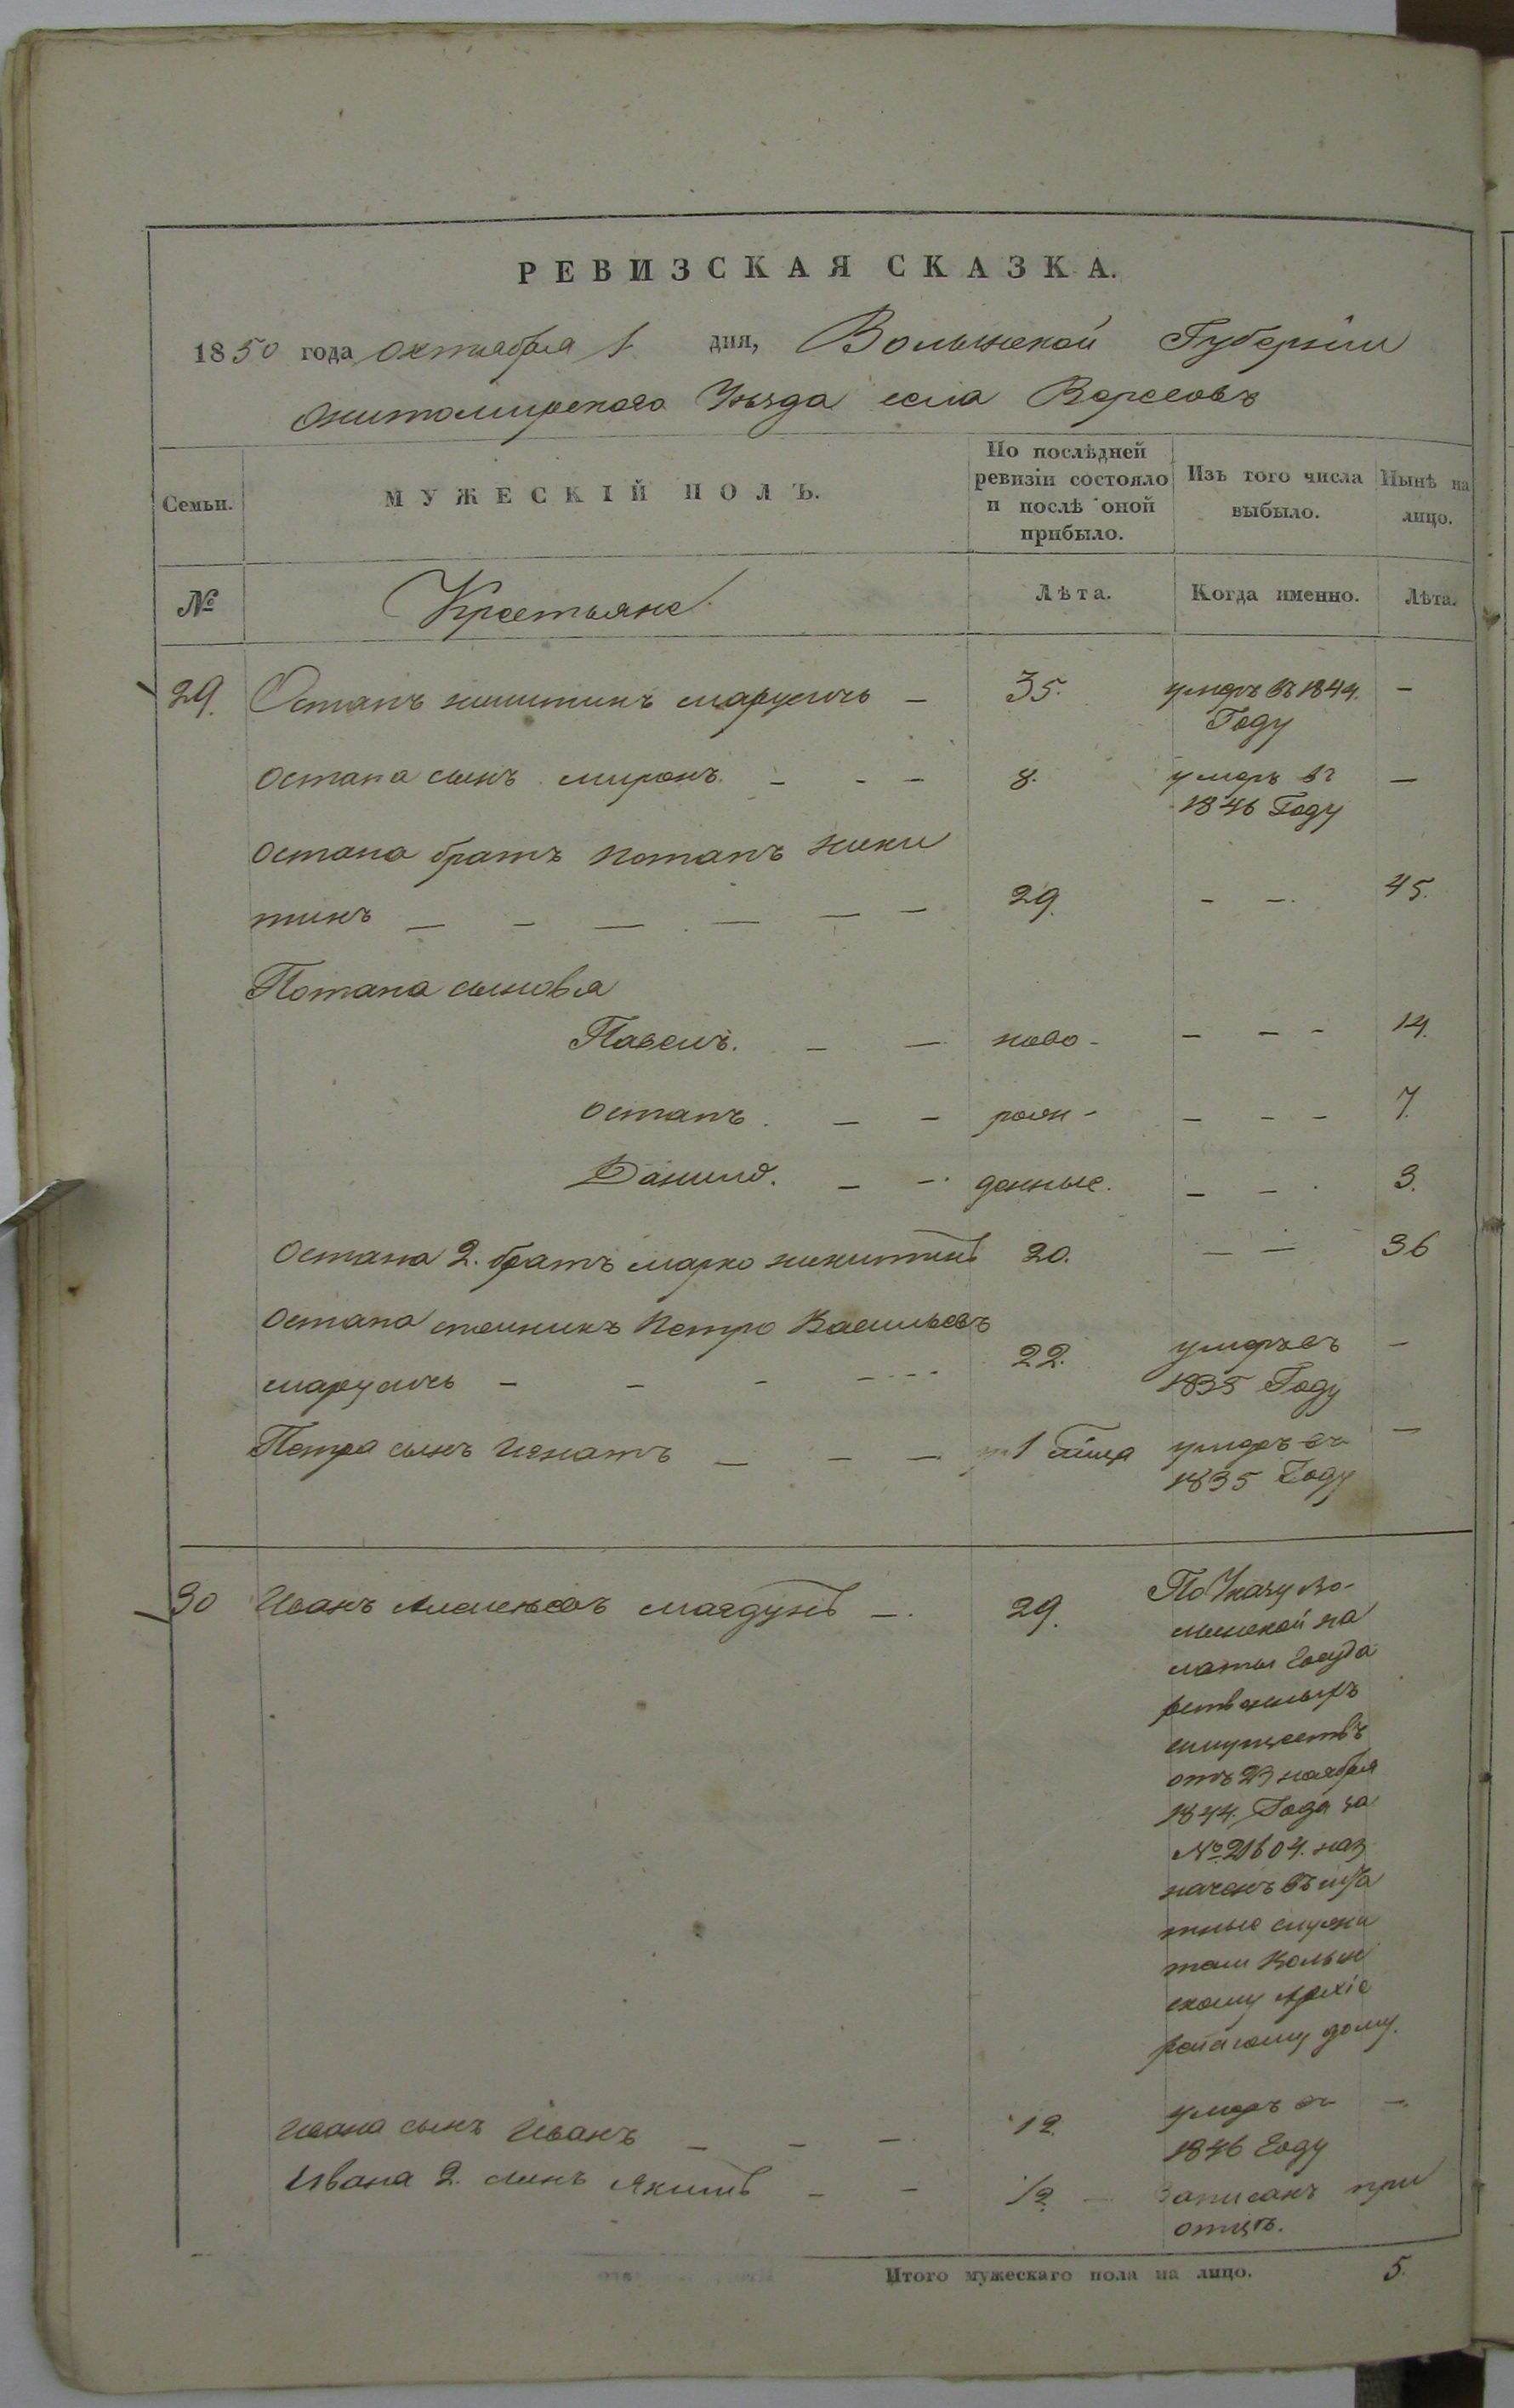 РЕВИЗСКАЯ СКАЗКА.
1850 года октября 1 дня, Волынской Губерніи
Житомирского Уѣзда села Ворсовъ
Семьи.
МУЖЕСКІЙ ПОЛЪ.
По послѣдней ревизіи состояло и послѣ оной прибыло.
Изъ того числа выбыло.
Нынѣ на лицо.
№ Крестьяне Лѣта. Когда именно. Лѣта.
29. Остапъ никитинъ марусичъ – 35. умеръ въ 1844. –
Году
Остапа сынъ миронъ – – – 8. умеръ въ –
1846 Году
Остапа братъ потапъ ники
тинъ – – – – – – 29. – – 45.
Потапа сыновья
Павелъ. – – ново – – – – 14.
остапъ. – – рож – – – – 7.
Данило. – – денные. – – 3.
Остапа 2. братъ марко никитинъ 20. – – 36
Остапа племникъ Петро Васильевъ
марусичъ – – – – 22. умеръ въ –
1835 Году
Петра сынъ Игнатъ – – – 1 умеръ въ –
1835 Году
30 Иванъ Алексѣевъ –. 29. По Указу Во-
лынской па
латы Госуда
рственныхъ
имуществъ
отъ 23 ноября
1844. Года за
№ 21604. наз
наченъ въ шта
тные служи
тели Волын
скому Архіе
рейскому дому.
Ивана сынъ Иванъ – – – 12. умеръ въ –
1846 Году
Ивана 2. сынъ Якимъ – – 1/2 – Записанъ при
отцѣ.
Итого мужескаго пола на лицо. 5.